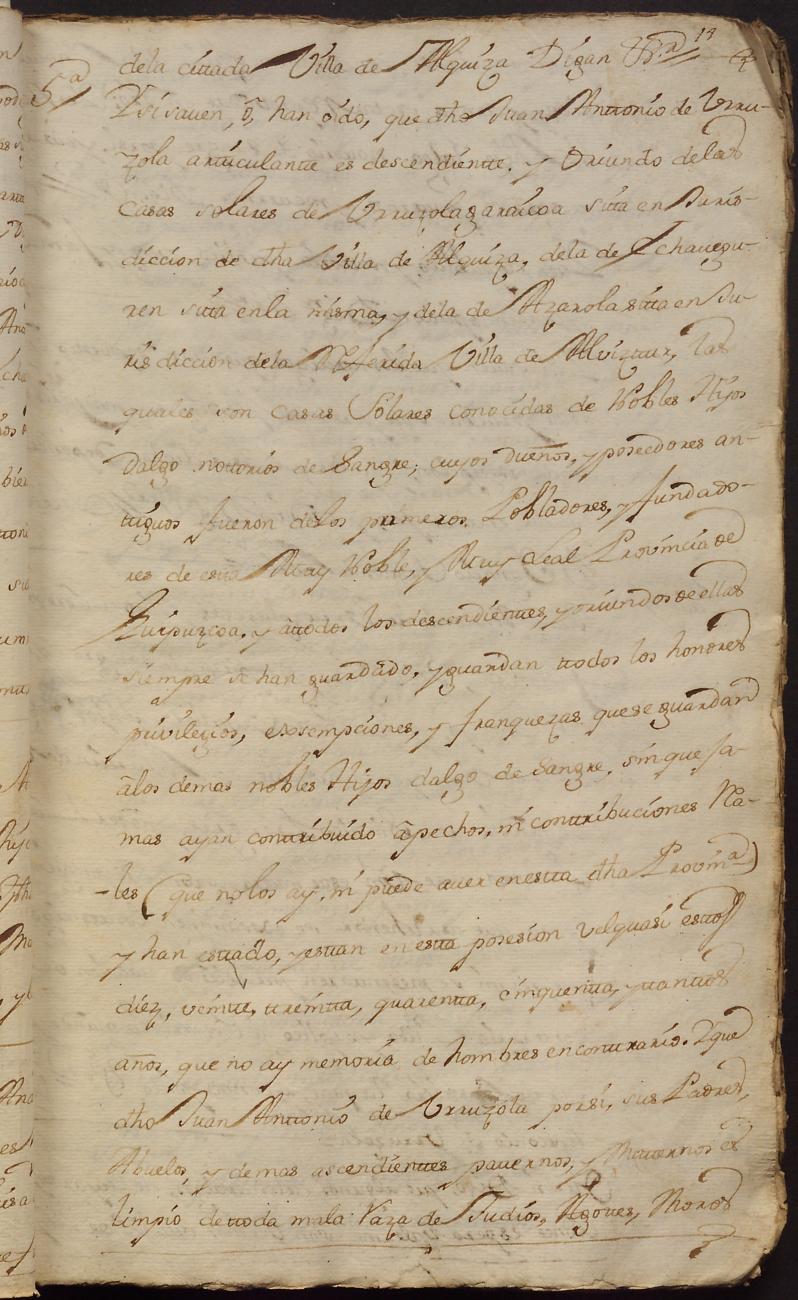 14
dela cittada Villa de Alquiza Digan &ª
5ª Y si sauen, ô, han oido, que dho Juan Anttonio de Vrru-
zola artticulantte es descendientte, y Oriundo delas
Casas solares de Vrruzolagaraicoa sitta en Juris-
diccion de dha Villa de Alquiza, dela de Echauegu-
ren sitta en la misma, y dela de Azarola sitta en Ju-
risdiccion dela Referida Villa de Alviztur, las
quales son Casas Solares conocidas de Nobles Hijos
dalgo nottorios de Sangre; cuyos dueños, y poseedores an-
ttiguos fueron delos primeros Pobladores, y fundado-
res de estta Muy Noble, y Muy Leal Provincia de
Guipuzcoa, y âttodos los descendienttes, y oriundos de ellas
siempre se han guardado, y guardan ttodos los honores
privilegios, exsempciones, y franquezas que se guardan
âlos demas nobles Hijos dalgo de Sangre, sin que ja-
mas ayan conttribuido âpechos, ni conttribuciones Rea-
-les (que no los ay, ni puede auer en estta dha Provinª)
y han esttado, y esttan en estta posesion velquasi esttos
diez, veintte, tireintta, quarentta, cinquentta, y ttanttos
años, que no ay memoria de hombres en conttrario. Y que
dho Juan Anttonio de Vrruzola por si, sus Padres,
Abuelos, y demas ascendienttes patternos, y Matternos es
limpio de ttoda mala raza de Judios, Agottes, Moros